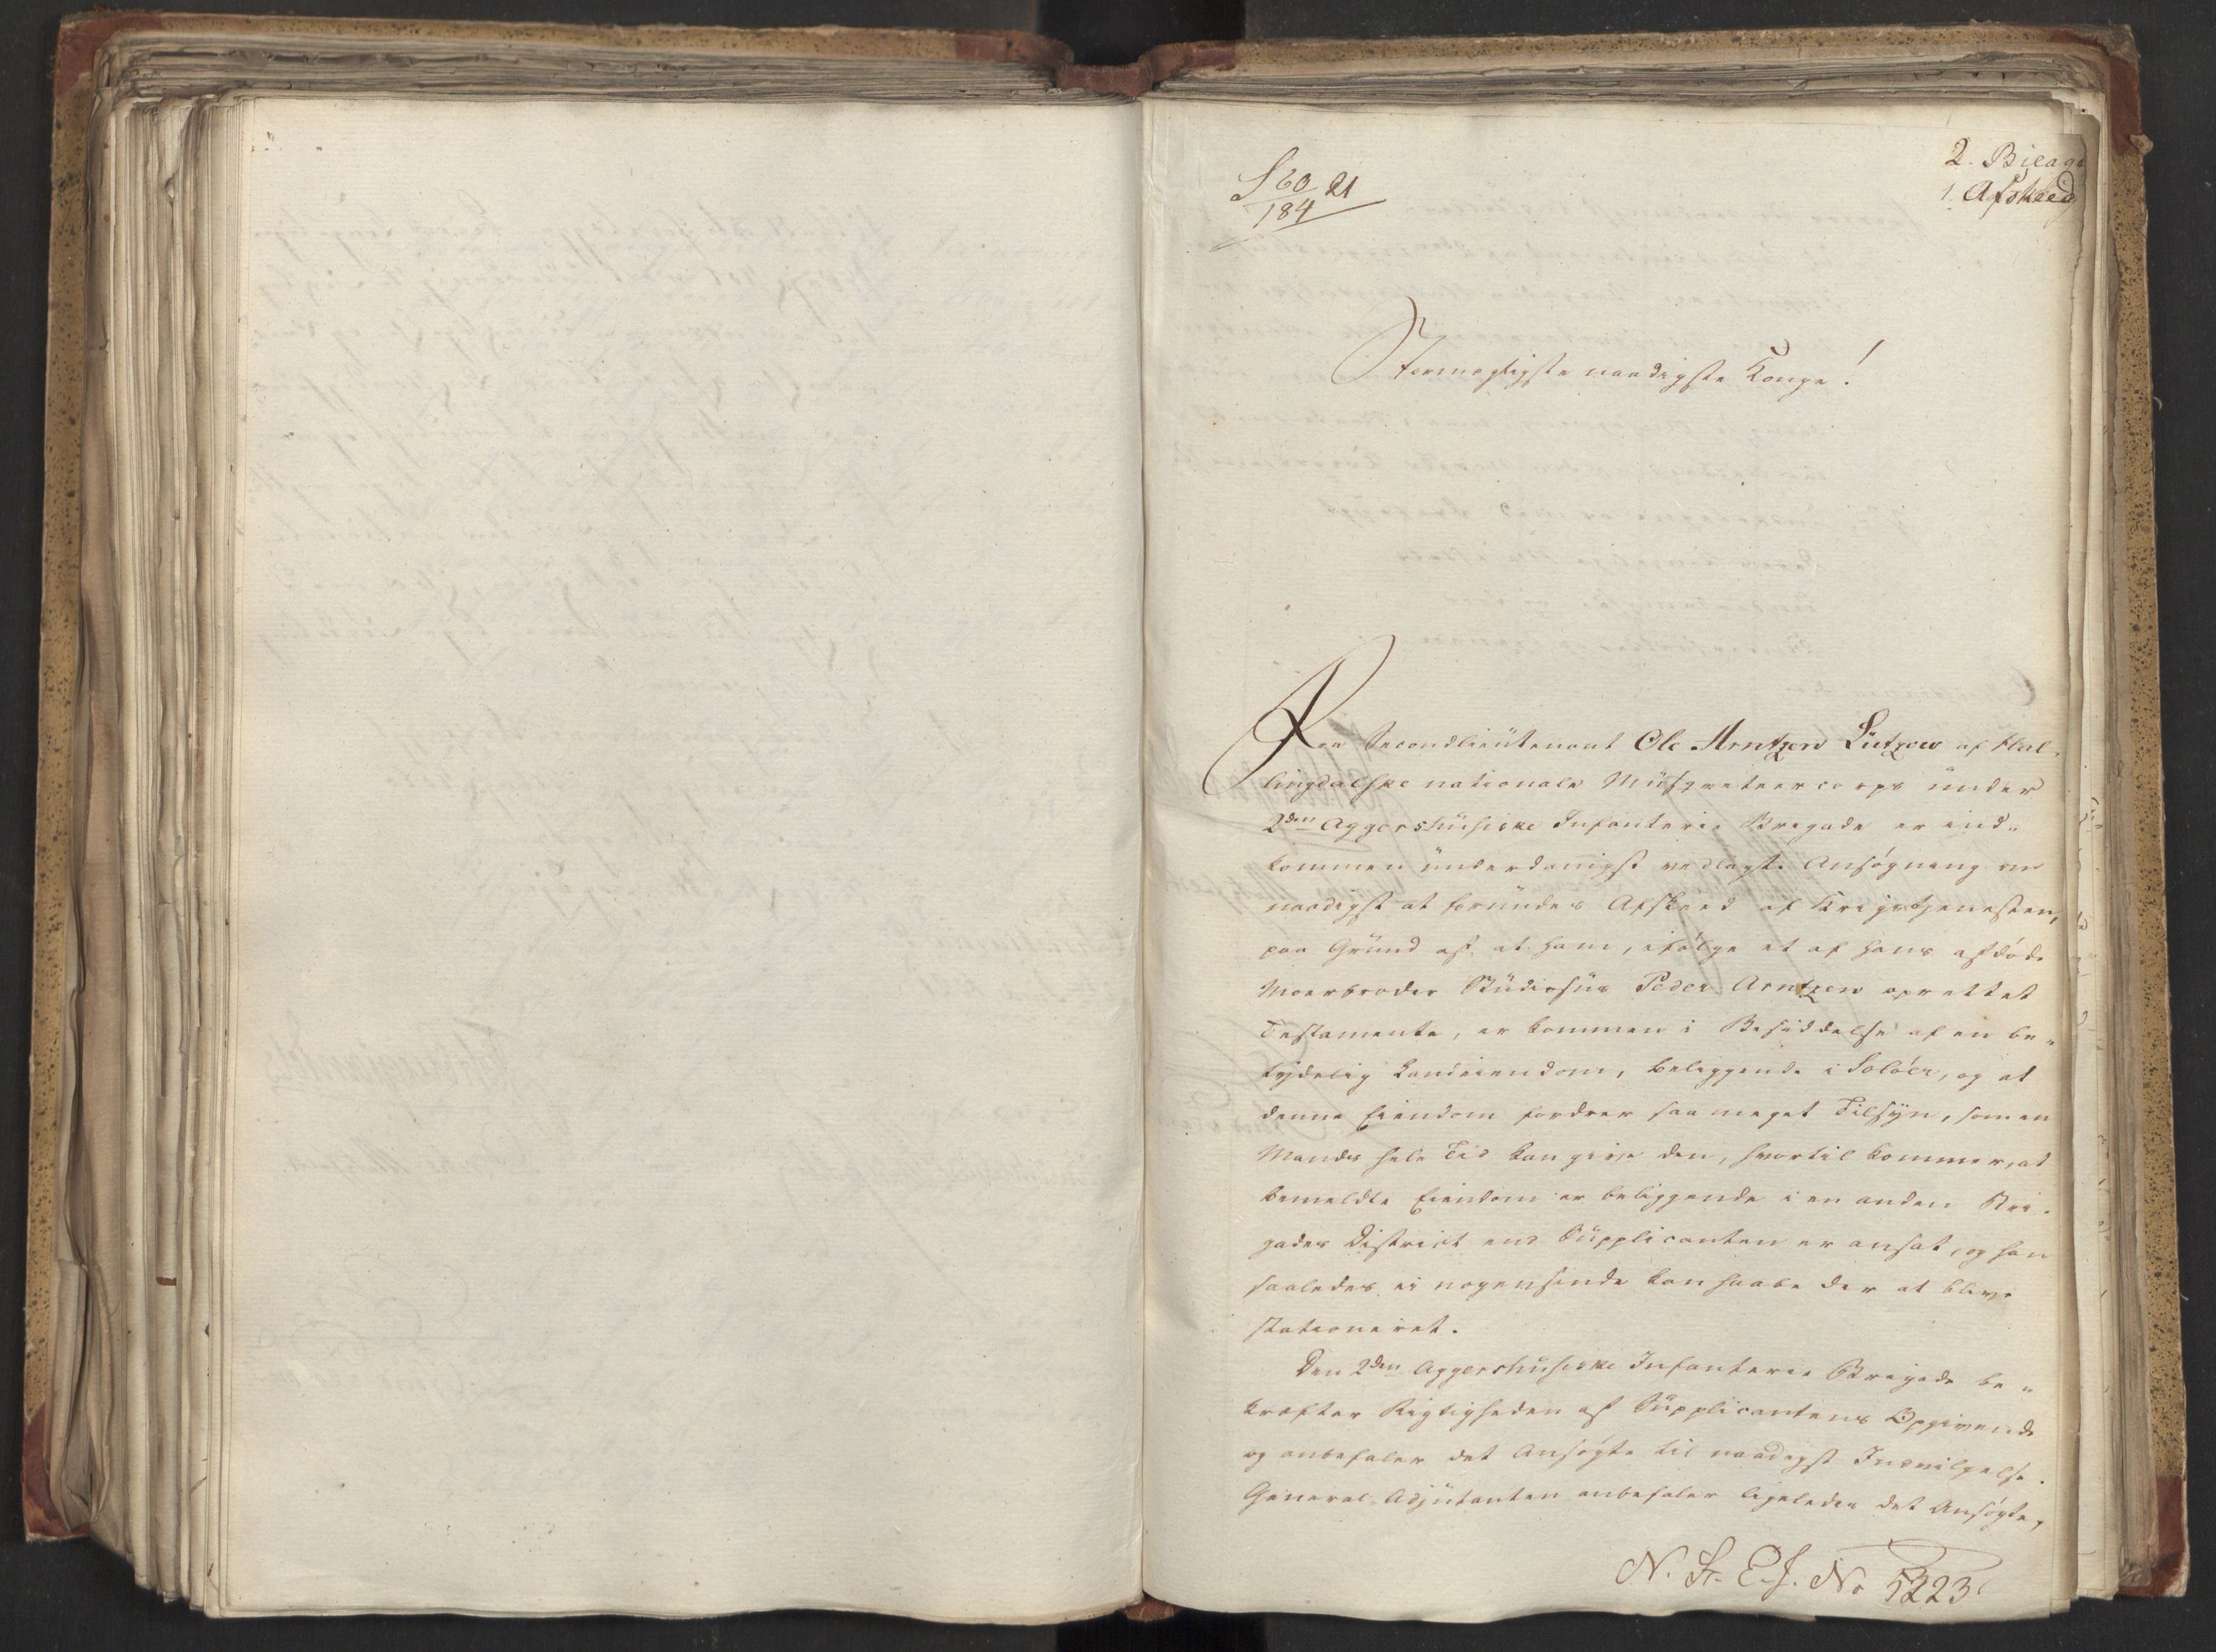 S 60 21
184
2. Bilag
1. Afskeed
Stormægtigste naadigste Konge!
Fra Secondlieutenant Ole Arntzen Lützow af Hal-
lingdalske nationale Musqueteercorps under
2den Aggershuusiske Infanterie Brigade er ind-
kommen underdanigst vedlagte Ansøgning om
naadigst at forundes Afskeed af Krigstjenesten,
paa Grund af, at ham, ifølge et af hans afdøde
Moerbroder Studiosus Peder Arntzen oprettet
Testamente, er kommen i Besiddelse af en be-
tydelig Landeiendom, beliggende i Soløer, og at
denne Eiendom fordrer saa meget Tilsyn, som en
Mands hele Tid kan give den, hvortil kommer, at
bemeldte Eiendom er beliggende i en anden Bri-
gades District end Supplicanten er ansat, og han
saaledes ei nogensinde kan haabe der at blive
stationeret.
Den 2den Aggershuusiske Infanterie Brigade be-
kræfter Rigtigheden af Supplicantens Opgivende
og anbefaler det Ansøgte til naadigst Indvilgelse.
General-Adjutanten anbefaler ligeledes det Ansøgte,
N. St. E. J. No 5223